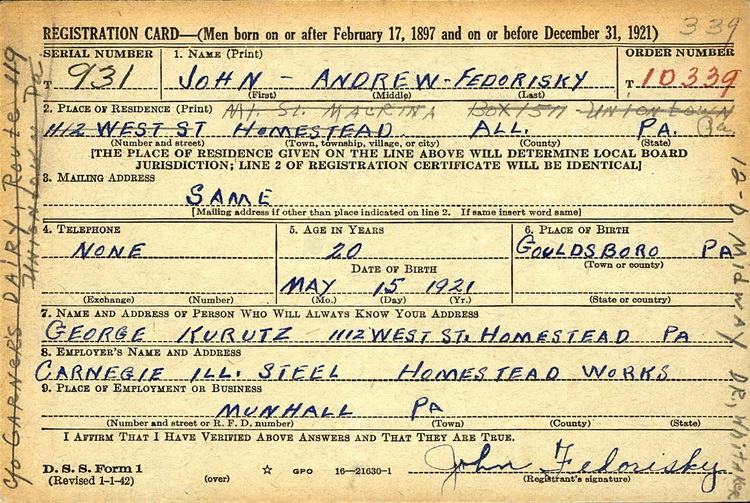 339
REGISTRATION CARD—(Men born on or after February 17, 1897 and on or before December 31, 1921)
SERIAL NUMBER
T 931
1. NAME (Print)
JOHN - ANDREW - FEDORISKY
(First) (Middle) (Last)
ORDER NUMBER
T 10339
2. PLACE OF RESIDENCE (Print) Mt St. MACRINA BOX 1511 UNIONTOWN Pa.
1112 WEST ST HOMESTEAD ALL. PA.
(Number and street) (Town, township, village, or city) (County) (State)
[THE PLACE OF RESIDENCE GIVEN ON THE LINE ABOVE WILL DETERMINE LOCAL BOARD
JURISDICTION; LINE 2 OF REGISTRATION CERTIFICATE WILL BE IDENTICAL]
3. MAILING ADDRESS
SAME
[Mailing address if other than place indicated on line 2. If same insert word same]
4. TELEPHONE
NONE
(Exchange) (Number)
5. AGE IN YEARS
20
DATE OF BIRTH
MAY 15 1921
(Mo.) (Day) (Yr.)
6. PLACE OF BIRTH
GOULDSBORO PA
(Town or county)
(State or country)
7. NAME AND ADDRESS OF PERSON WHO WILL ALWAYS KNOW YOUR ADDRESS
GEORGE KURUTZ 1112 WEST ST. HOMESTEAD PA
8. EMPLOYER'S NAME AND ADDRESS
CARNEGIE ILL. STEEL HOMESTEAD WORKS
9. PLACE OF EMPLOYMENT OR BUSINESS
MUNHALL PA
(Number and street or R. F. D. number) (Town) (County) (State)
I AFFIRM THAT I HAVE VERIFIED ABOVE ANSWERS AND THAT THEY ARE TRUE.
D. S. S. Form 1
(Revised 1-1-42) (over) ☆ GPO 16—21630-1
John Fedorisky
(Registrant's signature)
c/o GARNER'S DAIRY, Route 119
UNIONTOWN Pa.
12-D Midway DR, Whitaker